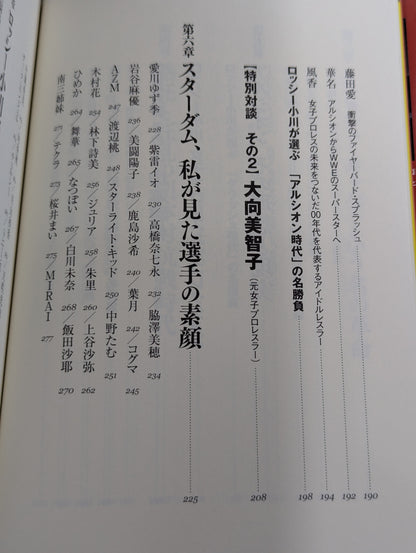 藤田愛 衝撃のファイヤーバード・スプラッシュ 190
華名 アルシオンからWWEのスーパースターへ 192
風香 女子プロレスの未来をつないだ00年代を代表するアイドルレスラー 194
ロッシー小川が選ぶ 「アルシオン時代」の名勝負 198
【特別対談 その2】大向美智子（元女子プロレスラー） 208
第六章 スターダム、私が見た選手の素顔 225
愛川ゆず季 228／紫雷イオ 230／高橋奈七永 232／脇澤美穂 234
岩谷麻優 236／美闘陽子 238／鹿島沙希 240／葉月 242／コグマ 245
AZM 247／渡辺桃 248／スターライト・キッド 250／中野たむ 251
木村花 254／林下詩美 256／ジュリア 258／朱里 260／上谷沙弥 262
ひめか 264／舞華 265／なつぽい 267／白川未奈 268／飯田沙耶 270
南三姉妹 271／テクラ 273／桜井まい 275／MIRAI 277